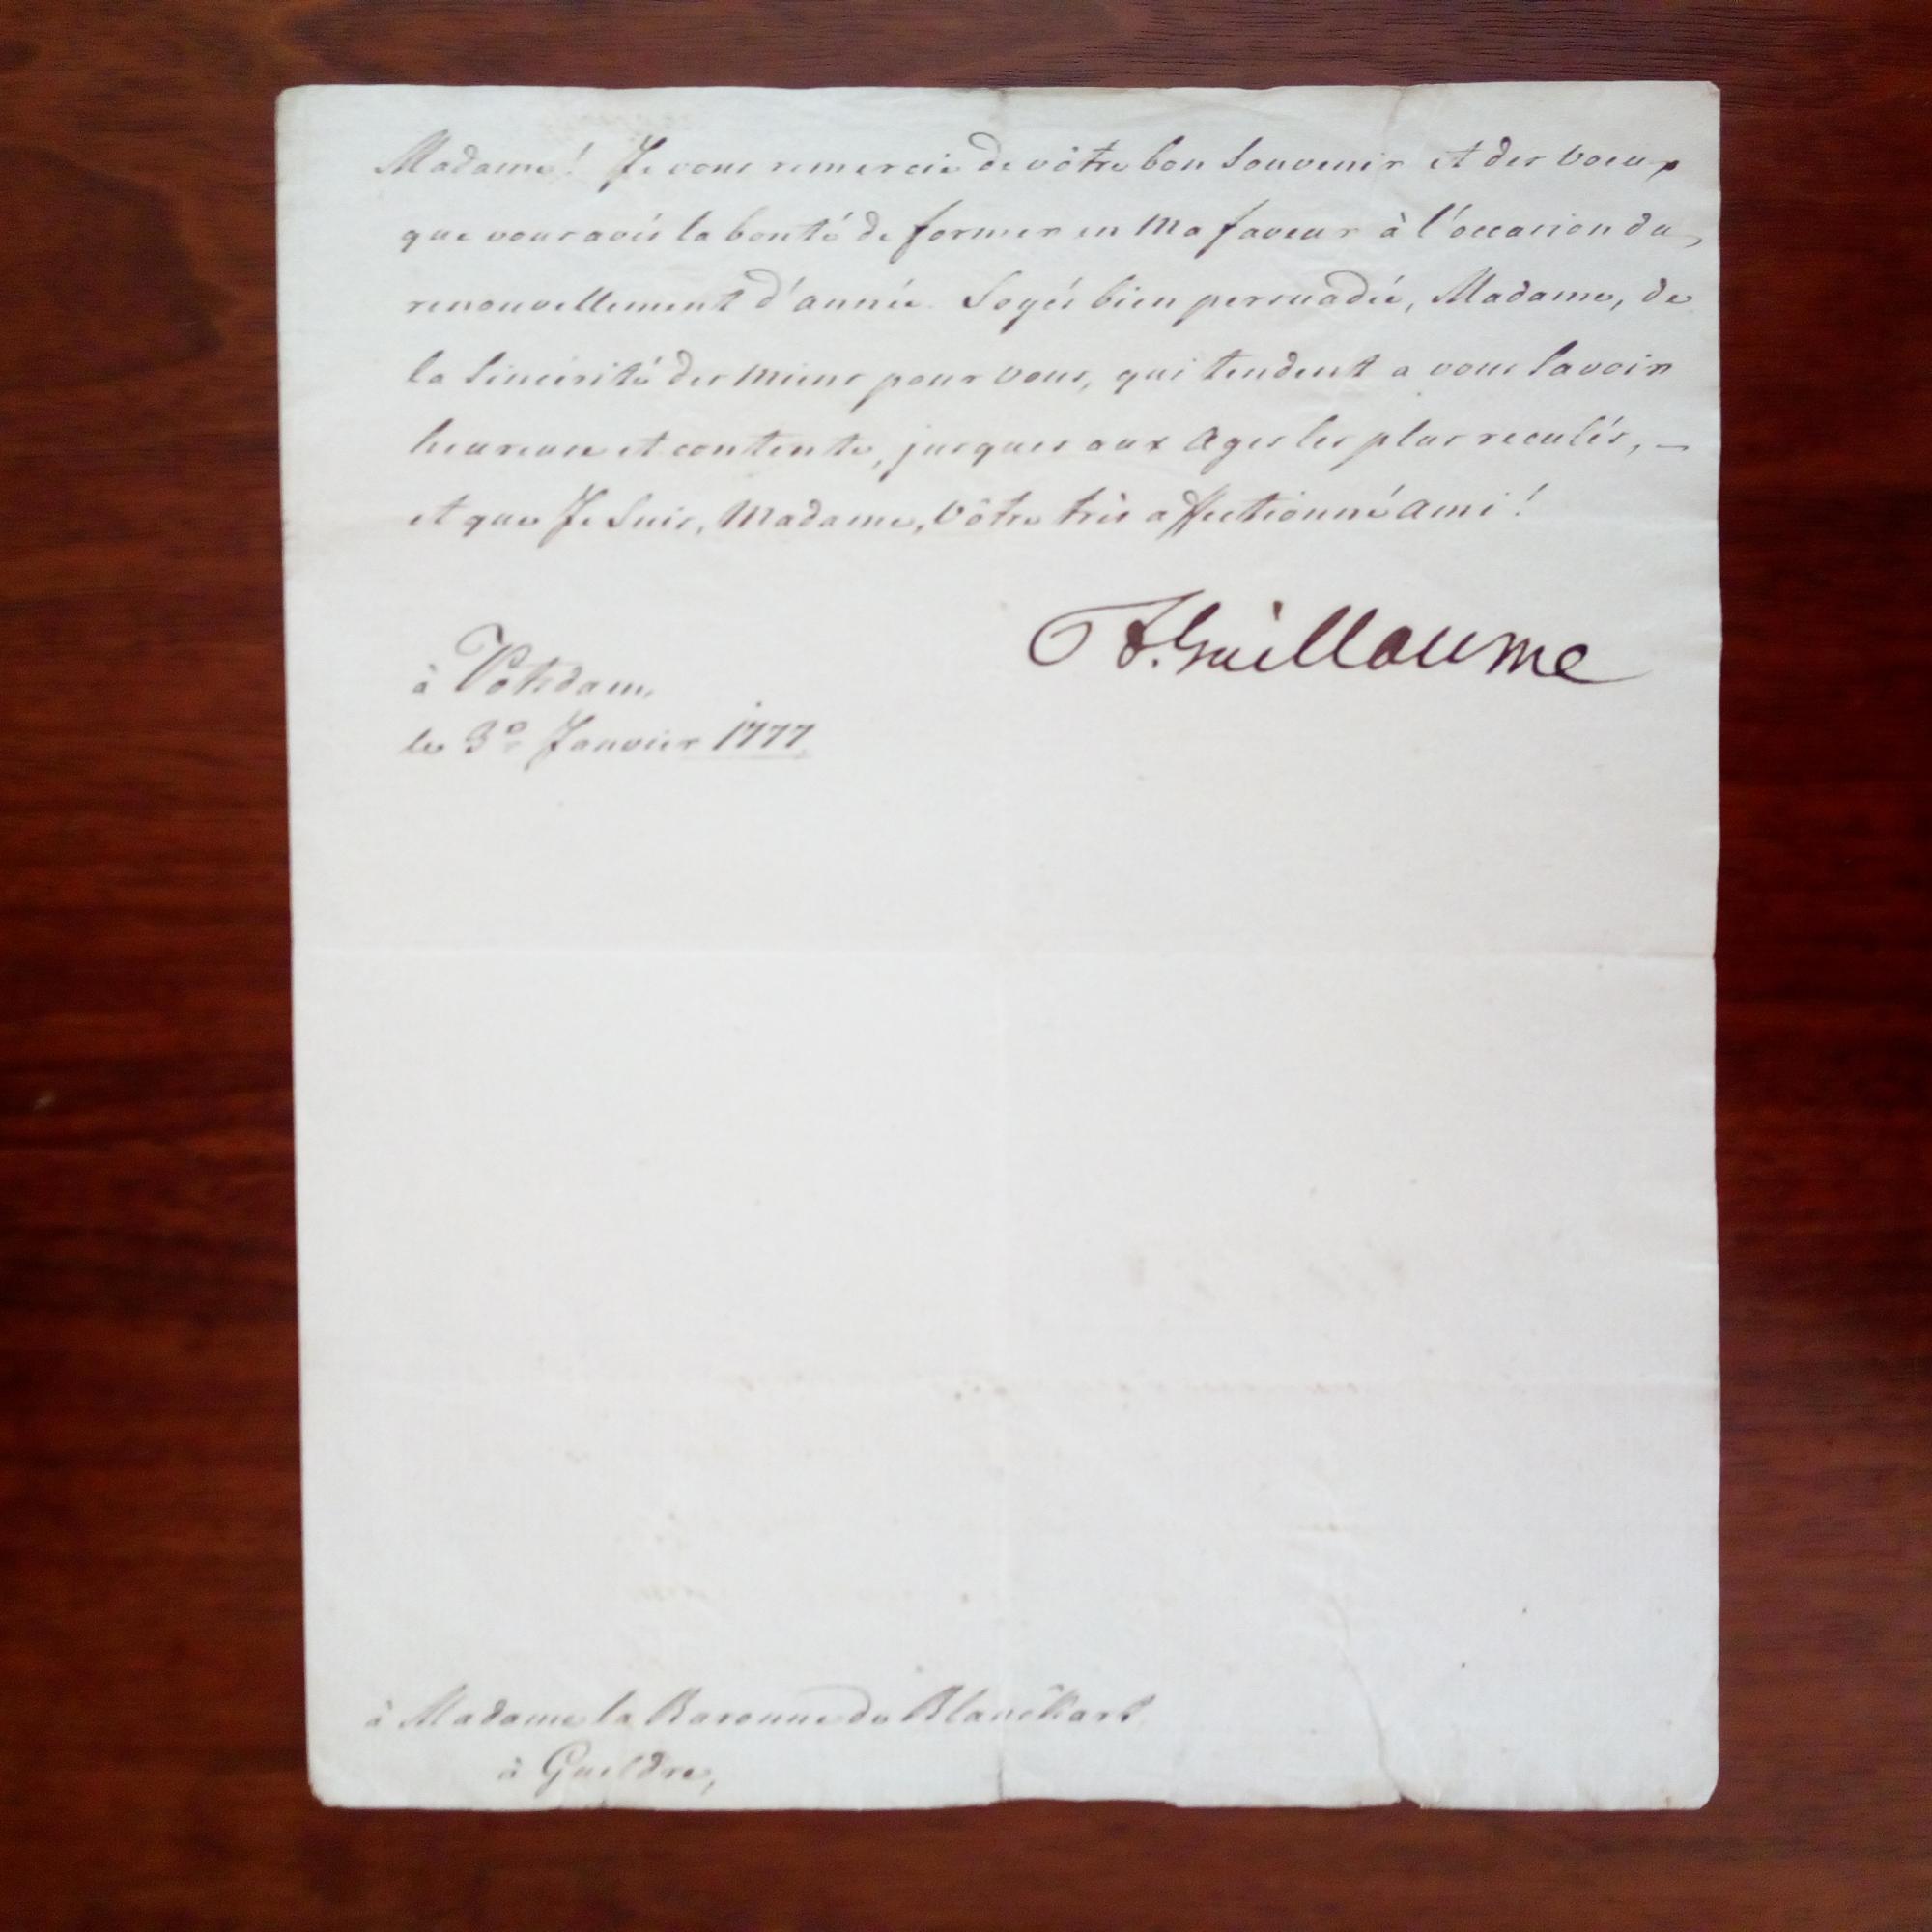 Madame! Je vous remercie de vôtre bon Souvenir et des voeux
que vous avés la bonté de former en Ma faveur à l'occasion du
renouvellement d'année. Soyés bien persuadée, Madame, de
la Sincérité des Miens pour vous, qui tendent a vous savoir
heureuse et contente, jusques aux Ages les plus reculés, —
et que Je Suis, Madame, Vôtre très affectionné Ami!
F. Guillaume
à Potsdam,
le 3e Janvier 1777.
à Madame la Baronne de Blanckart
à Gueldre,